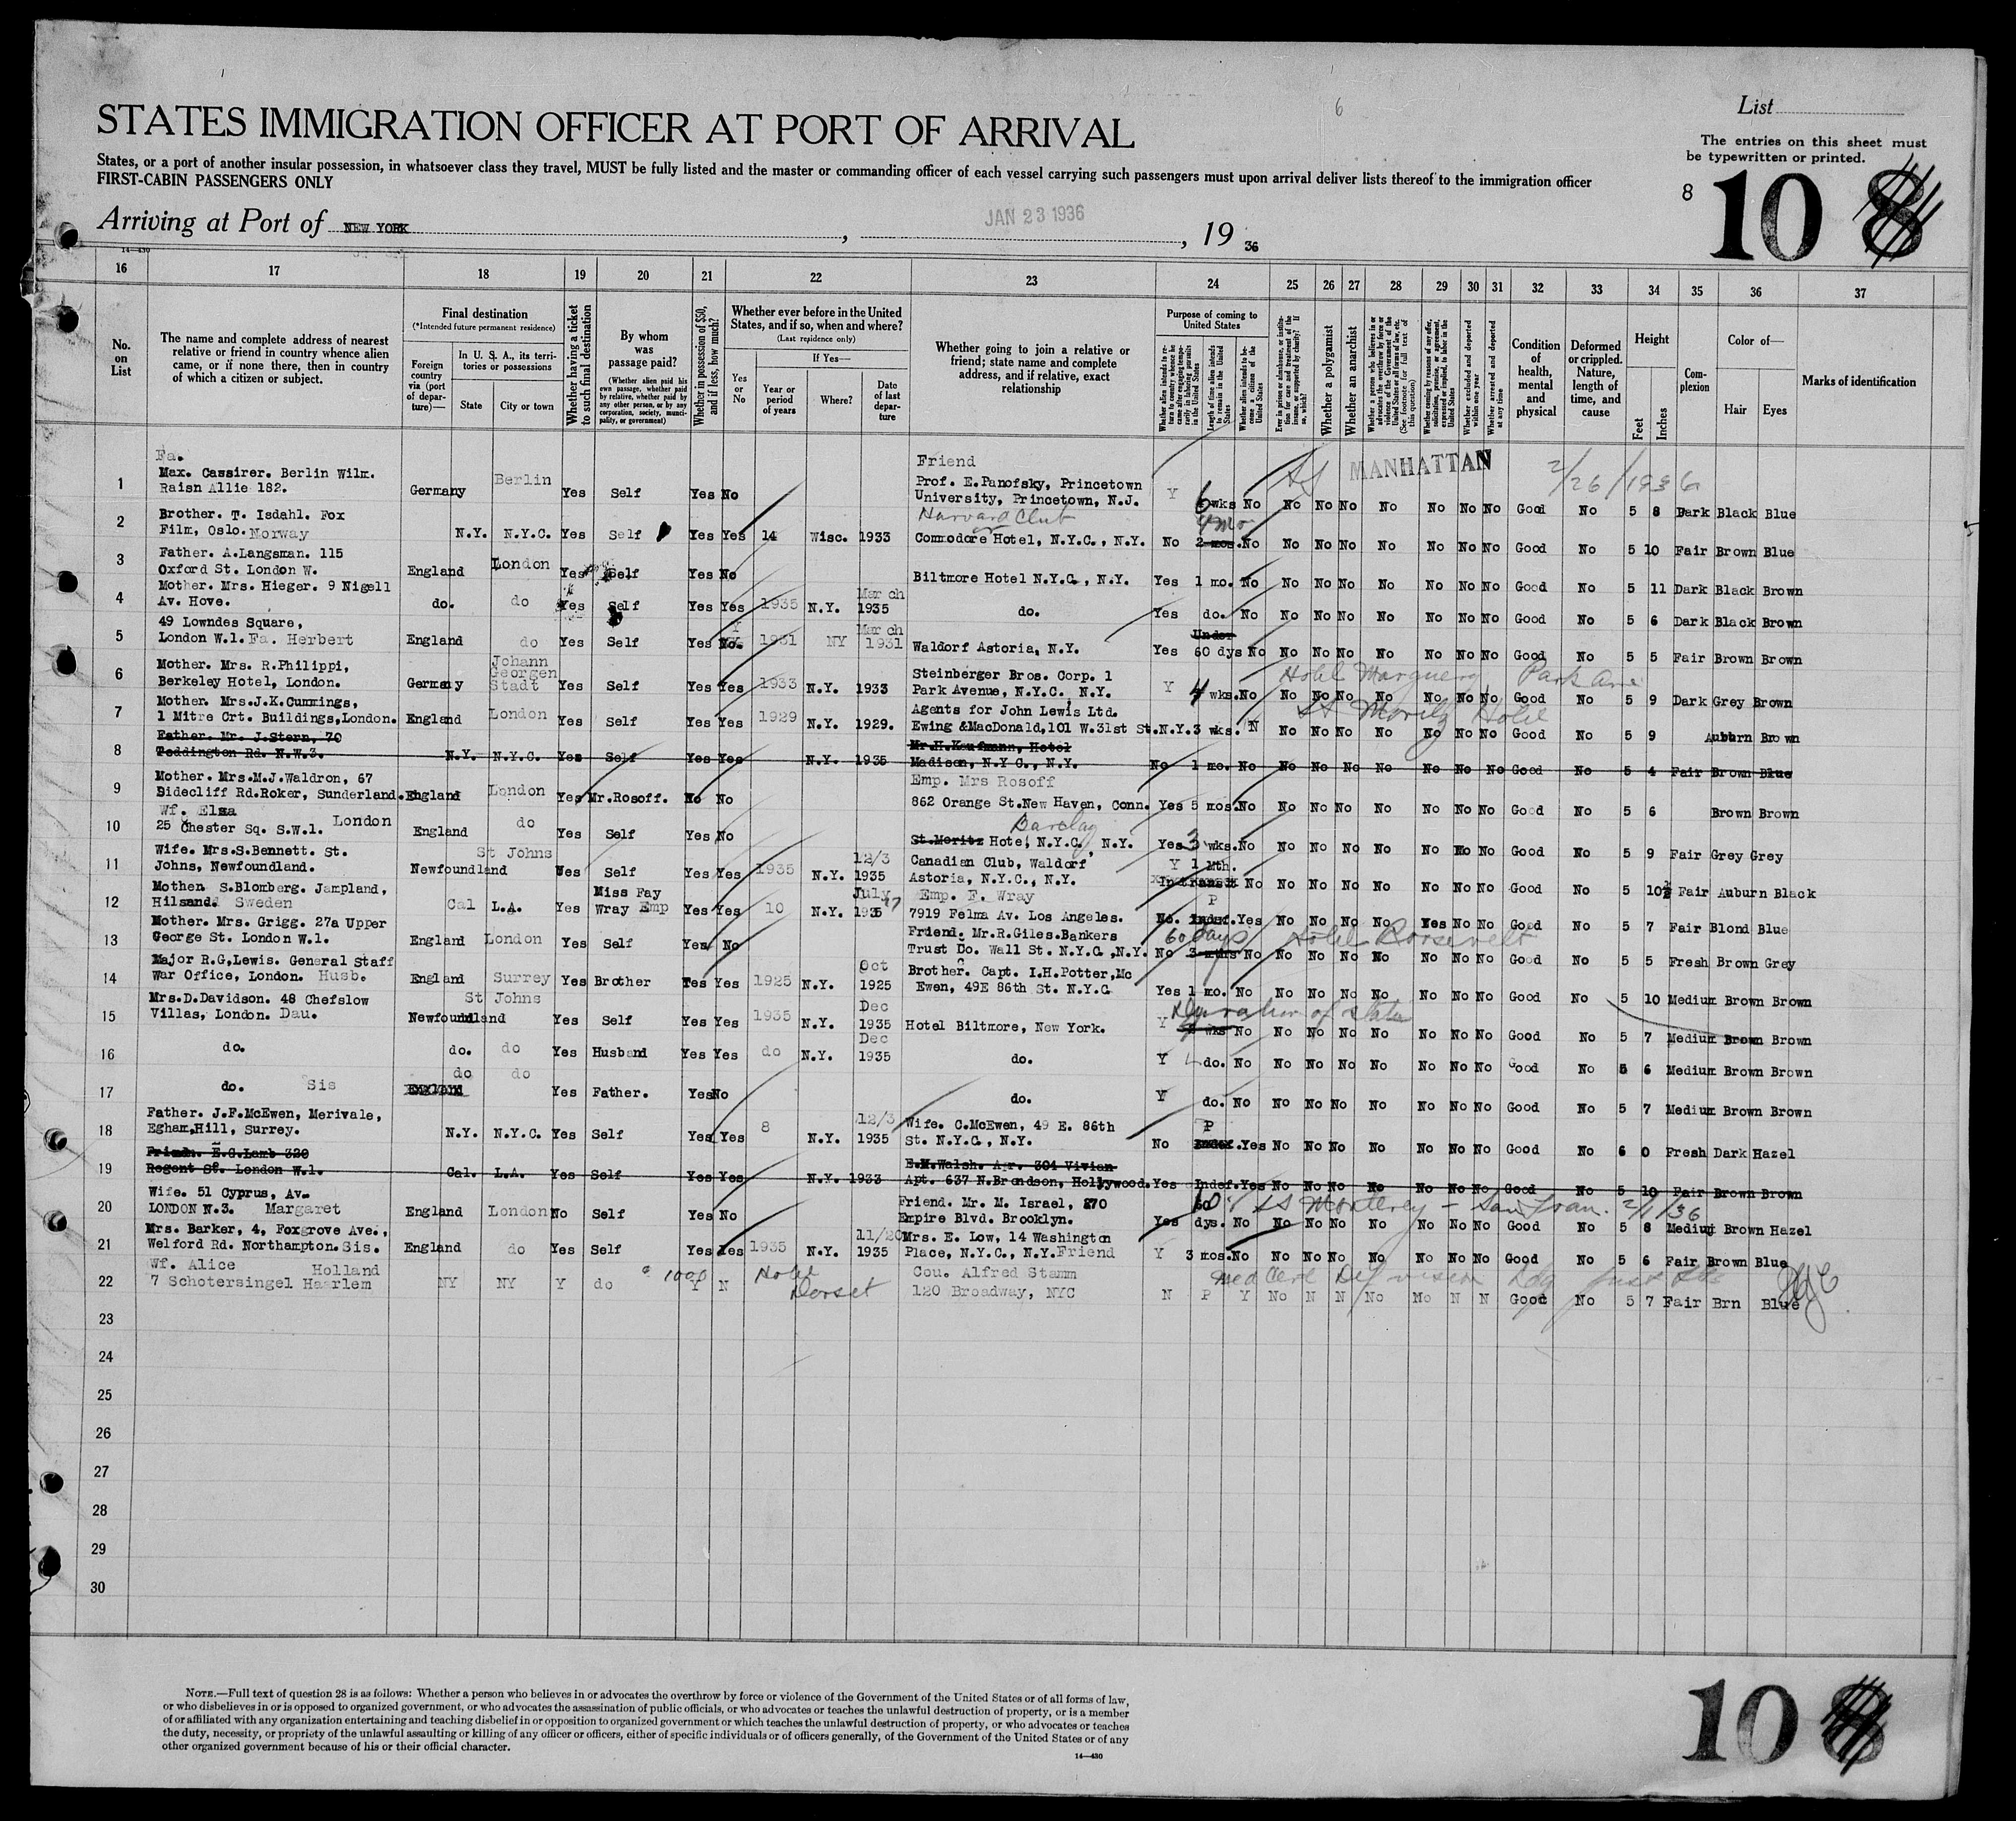 6
List
STATES IMMIGRATION OFFICER AT PORT OF ARRIVAL
The entries on this sheet must
be typewritten or printed.
States, or a port of another insular possession, in whatsoever class they travel, MUST be fully listed and the master or commanding officer of each vessel carrying such passengers must upon arrival deliver lists thereof to the immigration officer
FIRST-CABIN PASSENGERS ONLY
8 10 8
Arriving at Port of NEW YORK, JAN 23 1936, 19 36
14—430
16 17 18 19 20 21 22 23 24 25 26 27 28 29 30 31 32 33 34 35 36 37
No. on List
The name and complete address of nearest relative or friend in country whence alien came, or if none there, then in country of which a citizen or subject.
Final destination
(*Intended future permanent residence)
Foreign country via (port of departure)—
In U. S. A., its territories or possessions
State
City or town
Whether having a ticket to such final destination
By whom was passage paid?
(Whether alien paid his own passage, whether paid by relative, whether paid by any other person, or by any corporation, society, municipality, or government)
Whether in possession of $50, and if less, how much?
Whether ever before in the United States, and if so, when and where?
(Last residence only)
Yes or No
If Yes—
Year or period of years
Where?
Date of last departure
Whether going to join a relative or friend; state name and complete address, and if relative, exact relationship
Purpose of coming to United States
Whether alien intends to return to country whence he came after engaging temporarily in laboring pursuits in the United States
Length of time alien intends to remain in the United States
Whether alien intends to become a citizen of the United States
Ever in prison or almshouse, or institution for care and treatment of the insane, or supported by charity? If so, which?
Whether a polygamist
Whether an anarchist
Whether a person who believes in or advocates the overthrow by force or violence of the Government of the United States or all forms of law, etc. (See footnote for full text of this question)
Whether coming by reason of any offer, solicitation, promise, or agreement, expressed or implied, to labor in the United States
Whether excluded and deported within one year
Whether arrested and deported at any time
Condition of health, mental and physical
Deformed or crippled. Nature, length of time, and cause
Height
Feet
Inches
Complexion
Color of—
Hair
Eyes
Marks of identification
Fa. Friend MANHATTAN 2/26/1936
1 Max. Cassirer. Berlin Wilm. Raisn Allie 182. Germany Berlin Yes Self Yes No Prof. E.Panofsky, Princetown University, Princetown, N.J. Y 6 wks No No No No No No No No Good No 5 8 Dark Black Blue
2 Brother. T. Isdahl. Fox Film, Oslo. Norway N.Y. N.Y.C. Yes Self Yes Yes 14 Wisc. 1933 Harvard Club or Commodore Hotel, N.Y.C., N.Y. No 4 mo 2 mos. No No No No No No No No Good No 5 10 Fair Brown Blue
3 Father. A.Langsman. 115 Oxford St. London W. England London Yes Self Yes No Biltmore Hotel N.Y.C., N.Y. Yes 1 mo. No No No No No No No No Good No 5 11 Dark Black Brown
4 Mother. Mrs. Hieger. 9 Nigell Av. Hove. do. do Yes Self Yes Yes 1935 N.Y. March 1935 do. Yes do. No No No No No No No No Good No 5 6 Dark Black Brown
5 49 Lowndes Square, London W.1. Fa. Herbert England do Yes Self Yes No. Y 1931 NY March 1931 Waldorf Astoria, N.Y. Yes Under 60 dys No No No No No No No No Good No 5 5 Fair Brown Brown
6 Mother. Mrs. R.Philippi, Berkeley Hotel, London. Germany Johann Georgen Stadt Yes Self Yes Yes 1933 N.Y. 1933 Steinberger Bros. Corp. 1 Park Avenue, N.Y.C, N.Y. Y 4 wks. No Hotel Marguery Park Ave No No No No No No No Good No 5 9 Dark Grey Brown
7 Mother. Mrs.J.K.Cummings, 1 Mitre Crt. Buildings,London. England London Yes Self Yes Yes 1929 N.Y. 1929. Agents for John Lewis Ltd. Ewing &MacDonald,101 W.31st St.N.Y. 3 wks. N St Moritz Hotel No No No No No No No Good No 5 9 Auburn Brown
8 Father. Mr. J.Stern, 70 Teddington Rd. N.W.3. N.Y. N.Y.C. Yes Self Yes Yes N.Y. 1935 Mr.H.Kaufmann, Hotel Madison, N.Y C., N.Y. No 1 mo. No No No No No No No No Good No 5 4 Fair Brown Blue
9 Mother. Mrs.M.J.Waldron, 67 Sidecliff Rd.Roker, Sunderland. England London Yes Mr.Rosoff. No No Emp. Mrs Rosoff 862 Orange St.New Haven, Conn. Yes 5 mos. No No No No No No No No Good No 5 6 Brown Brown
10 Wf. Elsa 25 Chester Sq. S.W.1. London England do Yes Self Yes No Barclay St.Moritz Hotel N.Y.C. N.Y. Yes 3 wks. No No No No No No No No Good No 5 9 Fair Grey Grey
11 Wife. Mrs.S.Bennett. St. Johns, Newfoundland. Newfoundland St Johns Yes Self Yes Yes 1935 N.Y. 12/3 1935 Canadian Club, Waldorf Astoria, N.Y.C., N.Y. Y 1 Mth. In transit No No No No No No No No Good No 5 10½ Fair Auburn Black
12 Mother. S.Blomberg. Jampland, Hilsand. Sweden Cal L.A. Yes Miss Fay Wray Emp Yes Yes 10 N.Y. July 1935 Emp. F. Wray 7919 Felma Av. Los Angeles. No. P Indef. Yes No No No No Yes No No Good No 5 7 Fair Blond Blue
13 Mother. Mrs. Grigg. 27a Upper George St. London W.1. England London Yes Self Yes No Friend. Mr.R.Giles.Bankers Trust Co. Wall St. N.Y.C ,N.Y. No 60 days 3 mths No Hotel Roosevelt No No No No No No No Good No 5 5 Fresh Brown Grey
14 Major R.G,Lewis. General Staff War Office, London. Husb. England Surrey Yes Brother Yes Yes 1925 N.Y. Oct 1925 Brother. Capt. I.H.Potter,Mc Ewen, 49E 86th St. N.Y.C Yes 1 mo. No No No No No No No No Good No 5 10 Medium Brown Brown
15 Mrs.D.Davidson. 48 Chefslow Villas, London. Dau. Newfoundland St Johns Yes Self Yes Yes 1935 N.Y. Dec 1935 Hotel Biltmore, New York. Y wks No No No No No No No No Good No 5 7 Medium Brown Brown
16 do. do. do Yes Husband Yes Yes do N.Y. Dec 1935 do. Y do. No No No No No No No No Good No 5 6 Medium Brown Brown
17 do. Sis England do do Yes Father. Yes No do. Y do. No No No No No No No No Good No 5 7 Medium Brown Brown
18 Father. J.F.McEwen, Merivale, Egham,Hill, Surrey. N.Y. N.Y.C. Yes Self Yes Yes 8 N.Y. 12/3 1935 Wife. C.McEwen, 49 E. 86th St. N.Y.C , N.Y. No P Indef. Yes No No No No No No No Good No 6 0 Fresh Dark Hazel
19 Friend. E.G.Lamb 320 Regent St. London W.1. Cal. L.A. Yes Self Yes Yes N.Y. 1933 E.M.Walsh. Agr. 304 Vivian Apt. 637 N.Brondson, Hollywood. Yes Indef. Yes No No No No No No No Good No 5 10 Fair Brown Brown
20 Wife. 51 Cyprus, Av. LONDON N.3. Margaret England London No Self Yes No Friend. Mr. M. Israel, 270 Empire Blvd. Brooklyn. Yes 10 60 dys. No SS Monterey - San Fran. 2/1/36 No No No No No No No Good No 5 8 Medium Brown Hazel
21 Mrs. Barker, 4, Foxgrove Ave., Welford Rd. Northampton. Sis. England do Yes Self Yes Yes 1935 N.Y. 11/20 1935 Mrs. E. Low, 14 Washington Place, N.Y.C., N.Y. Friend Y 3 mos. No No No No No No No No Good No 5 6 Fair Brown Blue
22 Wf. Alice Holland 7 Schotersingel Haarlem NY NY Y do 1000 Y N Hotel Dorset Cou. Alfred Stamm 120 Broadway, NYC Med Cert Def vision N P Y No N N No No N N Good No 5 7 Fair Brn Blue
23
24
25
26
27
28
29
30
NOTE.—Full text of question 28 is as follows: Whether a person who believes in or advocates the overthrow by force or violence of the Government of the United States or of all forms of law,
or who disbelieves in or is opposed to organized government, or who advocates the assassination of public officials, or who advocates or teaches the unlawful destruction of property, or is a member
of or affiliated with any organization entertaining and teaching disbelief in or opposition to organized government or which teaches the unlawful destruction of property, or who advocates or teaches
the duty, necessity, or propriety of the unlawful assaulting or killing of any officer or officers, either of specific individuals or of officers generally, of the Government of the United States or of any
other organized government because of his or their official character.
14—430
10 8